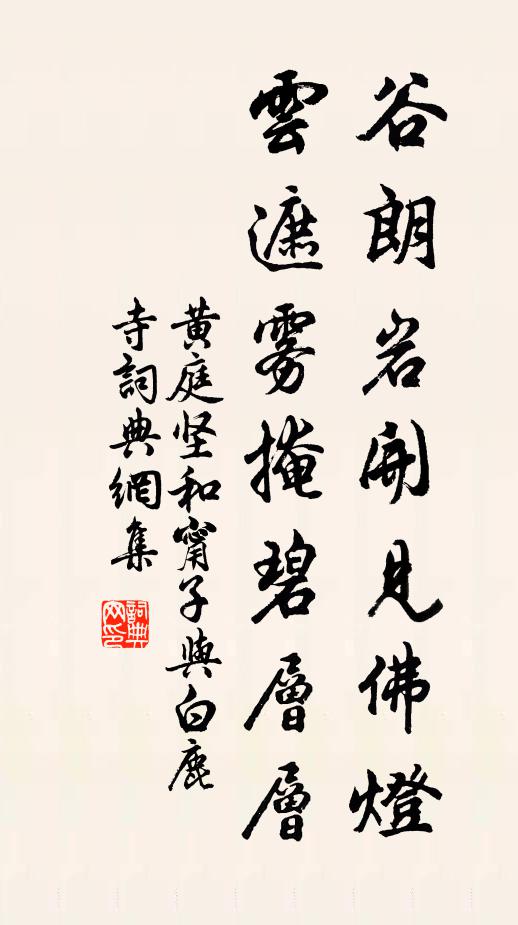 谷朗岩開見佛燈
雲遮雾掩碧層層
黃庭坚和甯子與白鹿
寺詞典網集
詞典网印